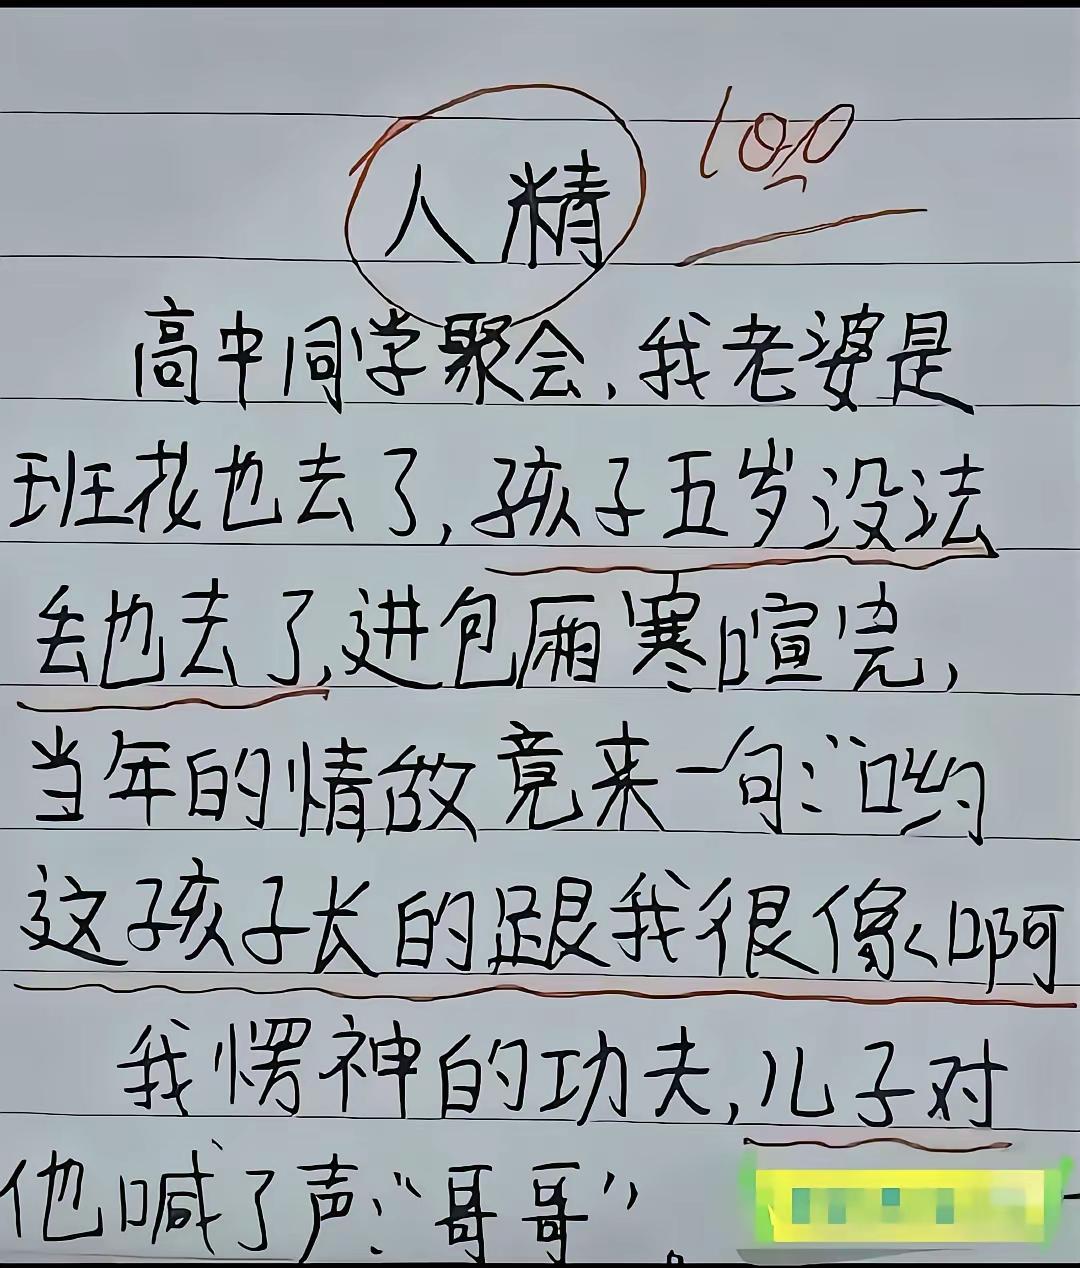 人精
100
高中同学聚会,我老婆是
班花也去了,孩子五岁没法
丢也去了,进包厢寒喧完,
当年的情敌竟来一句:哟
这孩子长的跟我很像啊
我愣神的功夫,儿子对
他喊了声:“哥哥”。